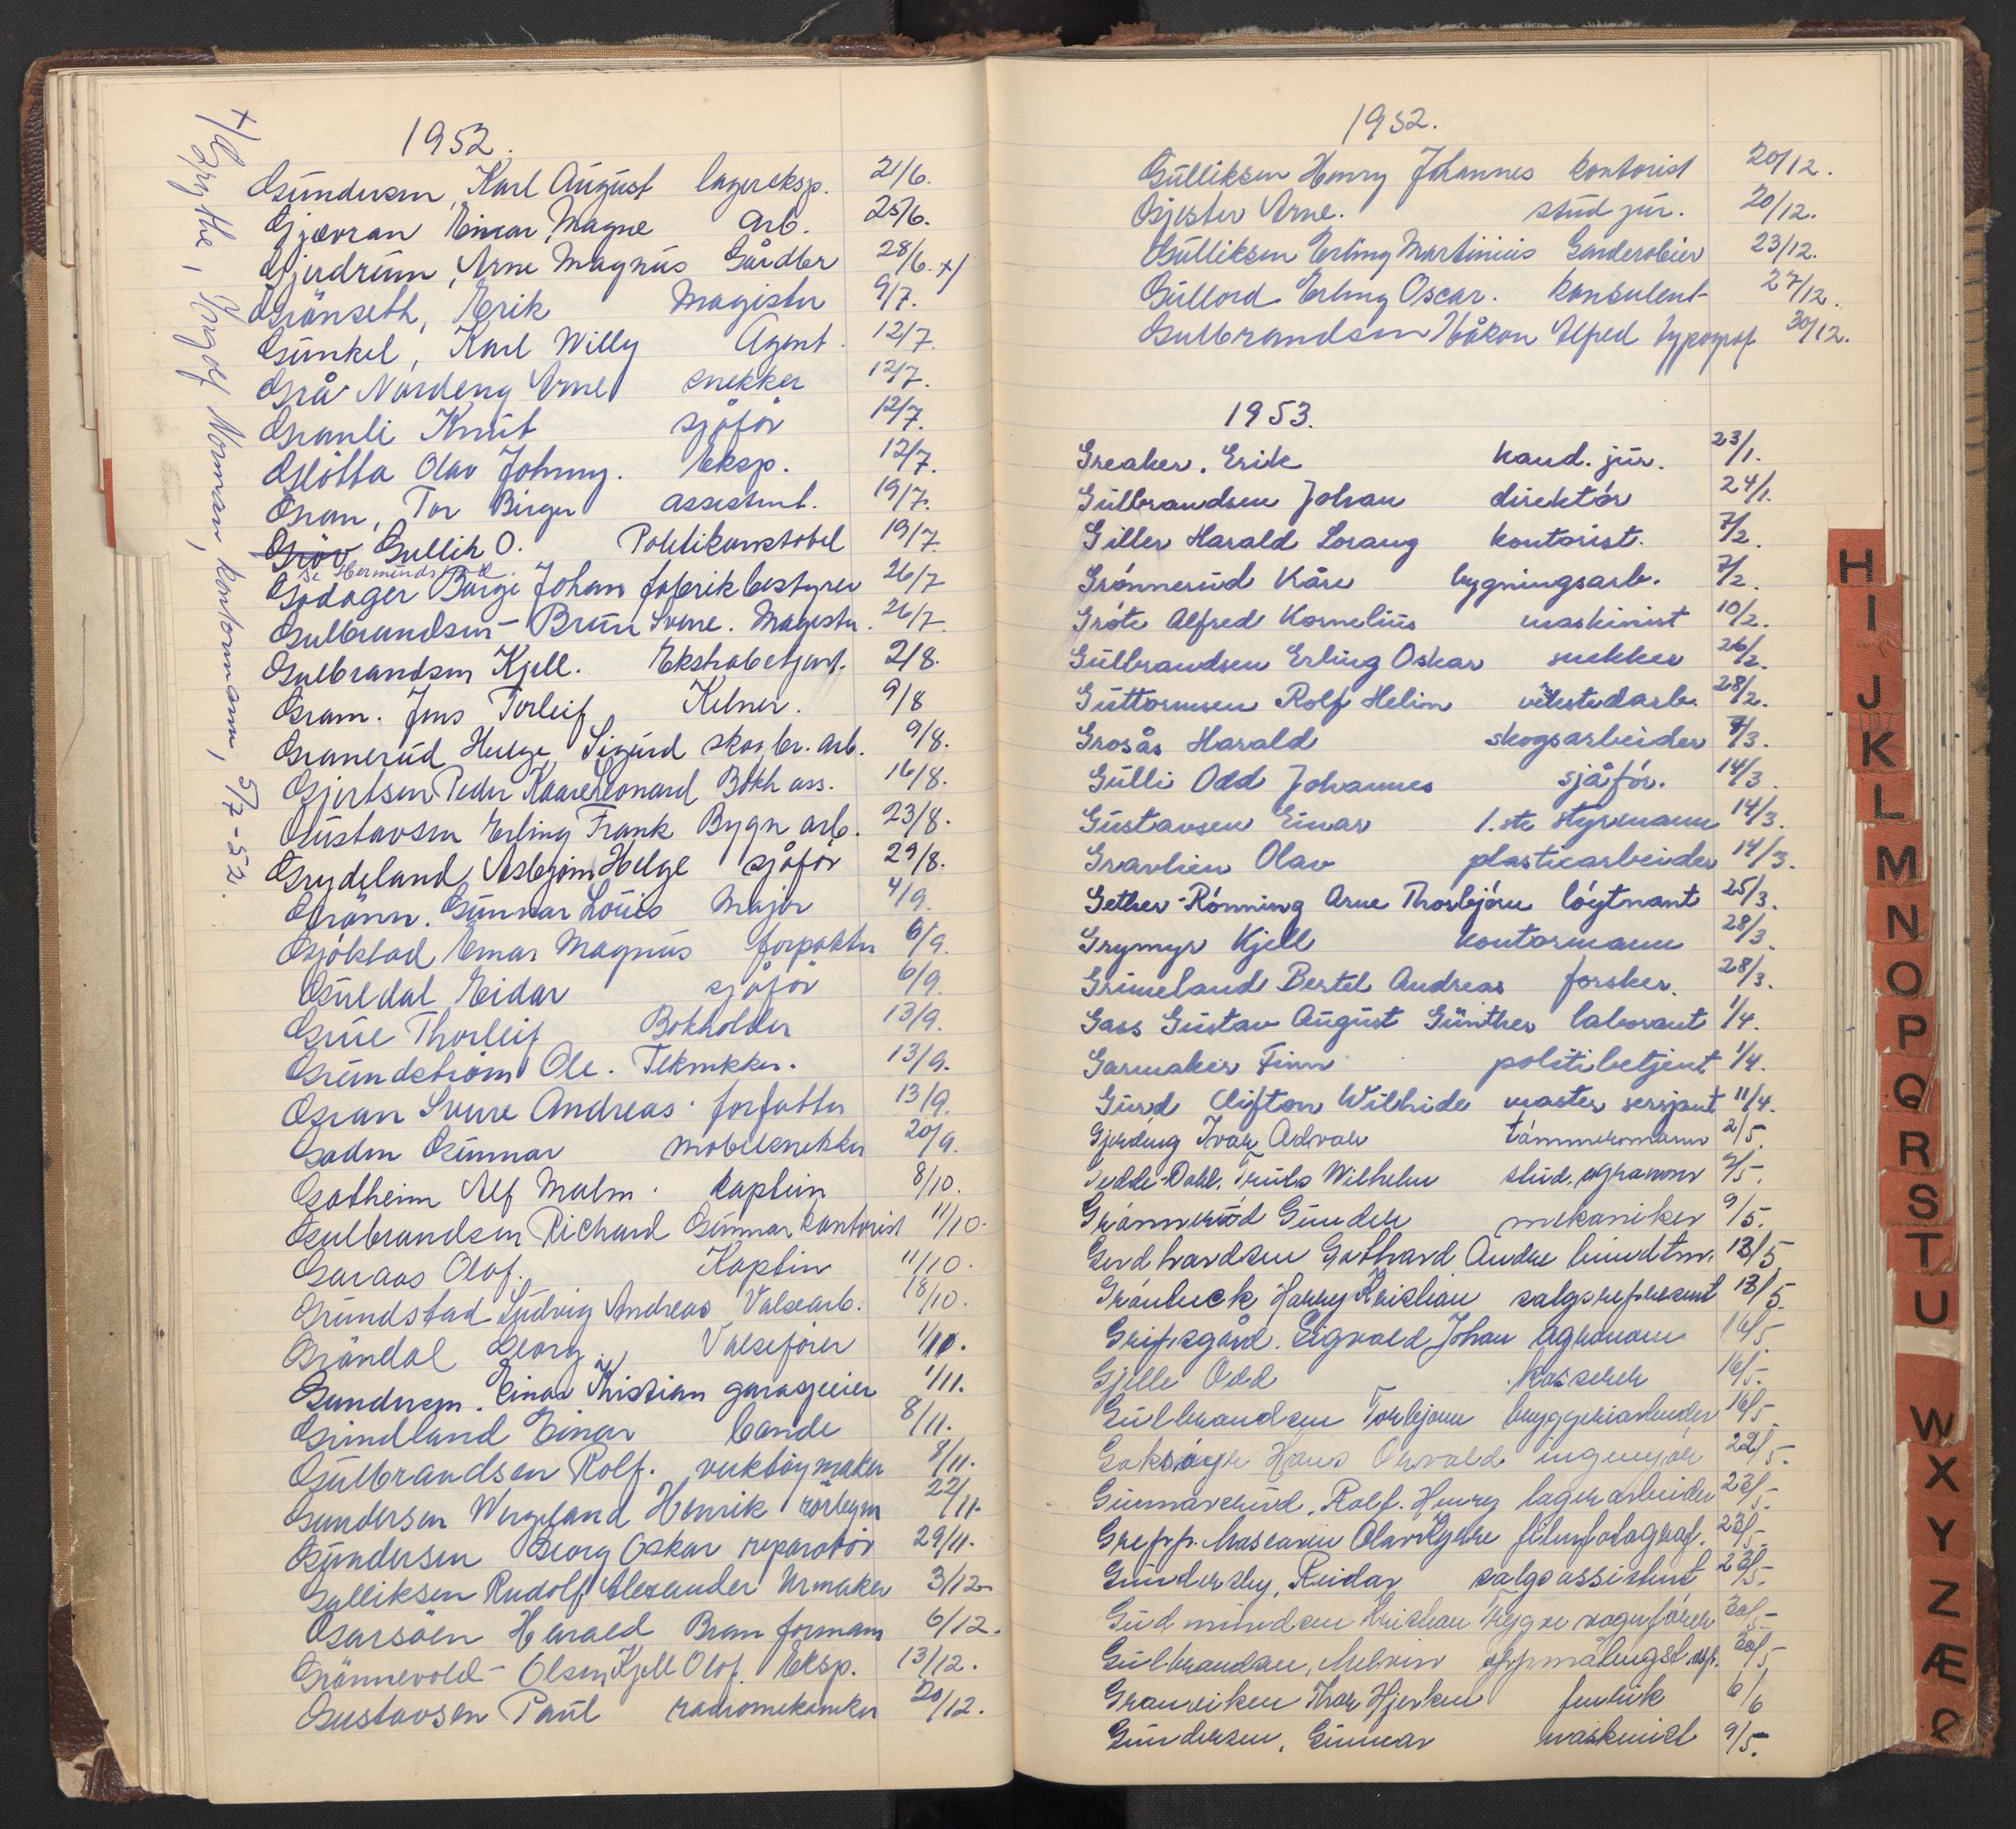 1952.
Gundersen, Karl August lagereksp. 21/6.
Gjævran Einar Magne Arb. 25/6.
Gjerdrum, Arne Magnus Gårdbr 28/6. x/
Grönseth, Erik Magister 9/7.
Gunkel, Karl Willy Agent. 12/7.
Grå Nordeng Arne snekker 12/7.
Granli Knut sjåför 12/7.
Glötta Olav Johnny. Eksp. 12/7.
Gran, Tor Birger assistent. 19/7.
Gröv Gullik O. Politikonstabel 19/7.
Godager Börge Johan fabrikbestyrer 26/7
Gulbrandsen-Brun Sverre. Magister. 26/7.
Gulbrandsen Kjell. Ekstrabetjent. 2/8.
Gram. Jens Torleif Kelner. 9/8
Granerud Helge Sigurd skogbr. arb. 9/8.
Gjertsen Peder Kaare Leonard Bokh ass. 16/8.
Gustavsen Erling Frank Bygn arb. 23/8.
Grydeland Asbjörn Helge sjåför 29/8.
Grönn. Gunnar Louis Major 4/9.
Gjökstad Einar Magnus forpakter 6/9.
Guldal Eidar sjåför 6/9.
Grue Thorleif Bokholder 13/9.
Grundström Ole. Tekniker. 13/9.
Gran Sverre Andreas. forfatter 13/9.
Gaden Gunnar möbelsnekker 20/9.
Gotheim Alf Malm. kaptein 8/10.
Gulbrandsen Richard Gunnar kontorist 11/10.
Garaas Olaf. Kaptein 11/10.
Grundstad Ludvig Andreas Valsearb. 18/10.
Gröndal Georg. Valsefører 1/10.
Gundersen. Einar Kristian garasjeeier 1/11.
Grindland Einar bonde 8/11.
Gulbrandsen Rolf. verktöymaker 8/11.
Gundersen Wergeland Henrik rörlegger 22/11.
Gundersen Georg Oskar reparatör 29/11.
Gulliksen Rudolf Alexander Urmaker 3/12.
Garsöen Harald Bran formann 6/12.
Grönnevold-Olsen, Kjell Olof. Eksp. 13/12.
Gustavsen Paul radiomekaniker 20/12.
x/ Grythe, Torgolf Norman, kontormann, 5/7-52.
1952.
Gulliksen Henry Johannes kontorist 20/12.
Gjester Arne. stud jur. 20/12.
Gulliksen Erling Martinius Garderobeier 23/12.
Gullord Erling Oscar. konsulent 27/12.
Gulbrandsen Håkon Alfred typograf 30/12.
1953.
Greaker. Erik kand. jur. 23/1.
Gulbrandsen Johan direktör 24/1.
Giller Harald Lorang kontorist. 7/2.
Grønnerud Kåre bygningsarb. 7/2.
Gróte Alfred Kornelius maskinist 10/2.
Gulbrandsen Erling Oskar snekker 26/2.
Guttormsen Rolf Helim verkstedarb. 28/2.
Grosås Harald skogsarbeider 7/3.
Gulli Odd Johannes sjåfør. 14/3.
Gustavsen Einar 1.ste styrmann 14/3.
Gravlien Olav plasticarbeider 14/3.
Gether-Rønning Arne Thorbjørn løytnant 25/3.
Grymyr Kjell kontormann 28/3.
Grimeland Bertel Andreas forsker. 28/3.
Gass Gustav August Günther laborant 1/4.
Garmaker Finn politibetjent 1/4.
Gurd Clifton Wilhide master sersjant 11/4.
Gjerding Ivar Advar tømmermann 2/5.
Gedde-Dahl. Truls Wilhelm stud. agronom 9/5.
Grønnerød Gunder mekaniker 9/5.
Gerdhardsen Gothard Andre hundtm. 13/5
Grønbeck Harry Kristian salgsrepresent 13/5.
Grefsgård. Sigvald Johan agronom 16/5
Gjelle Odd kasserer 16/5.
Gulbrandsen Torbjørn bryggeriarbeider 16/5
Goksøyr Hans Orvald ingeniør 22/5.
Gunnarsrud. Rolf. Henry lagerarbeider 23/5.
Grepp. Mascanin Olav Kyrre filmfotograf. 23/5.
Gundersby, Reidar salgsassistent 23/5.
Gudmundsen Kristian Trygve vognfører 30/5
Gulbrandsen, Melvin oppmålingst. asp. 30/5
Granviken Thor Hjerkin fenrik 6/6
Gundersen, Gunnar maskinist 9/5.
H
I
J
K
L
M
N
O
P
Q
R
S
T
U
W
X
Y
Z
Æ
Ø